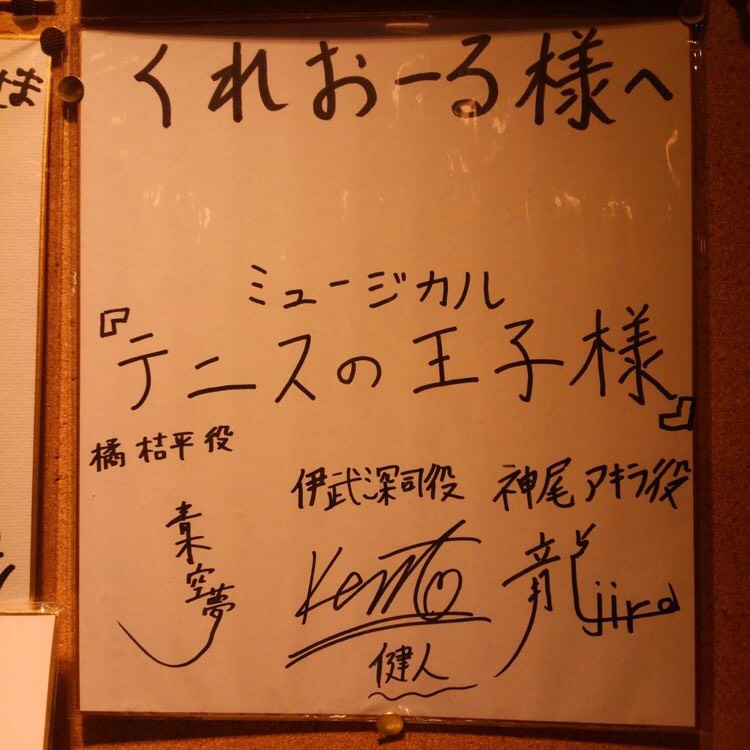 くれおーる様へ
ミュージカル
『テニスの王子様』
橘 桔平 役
伊武深司役
神尾アキラ役
青木空夢
Kento
龍jiro
健人
ま